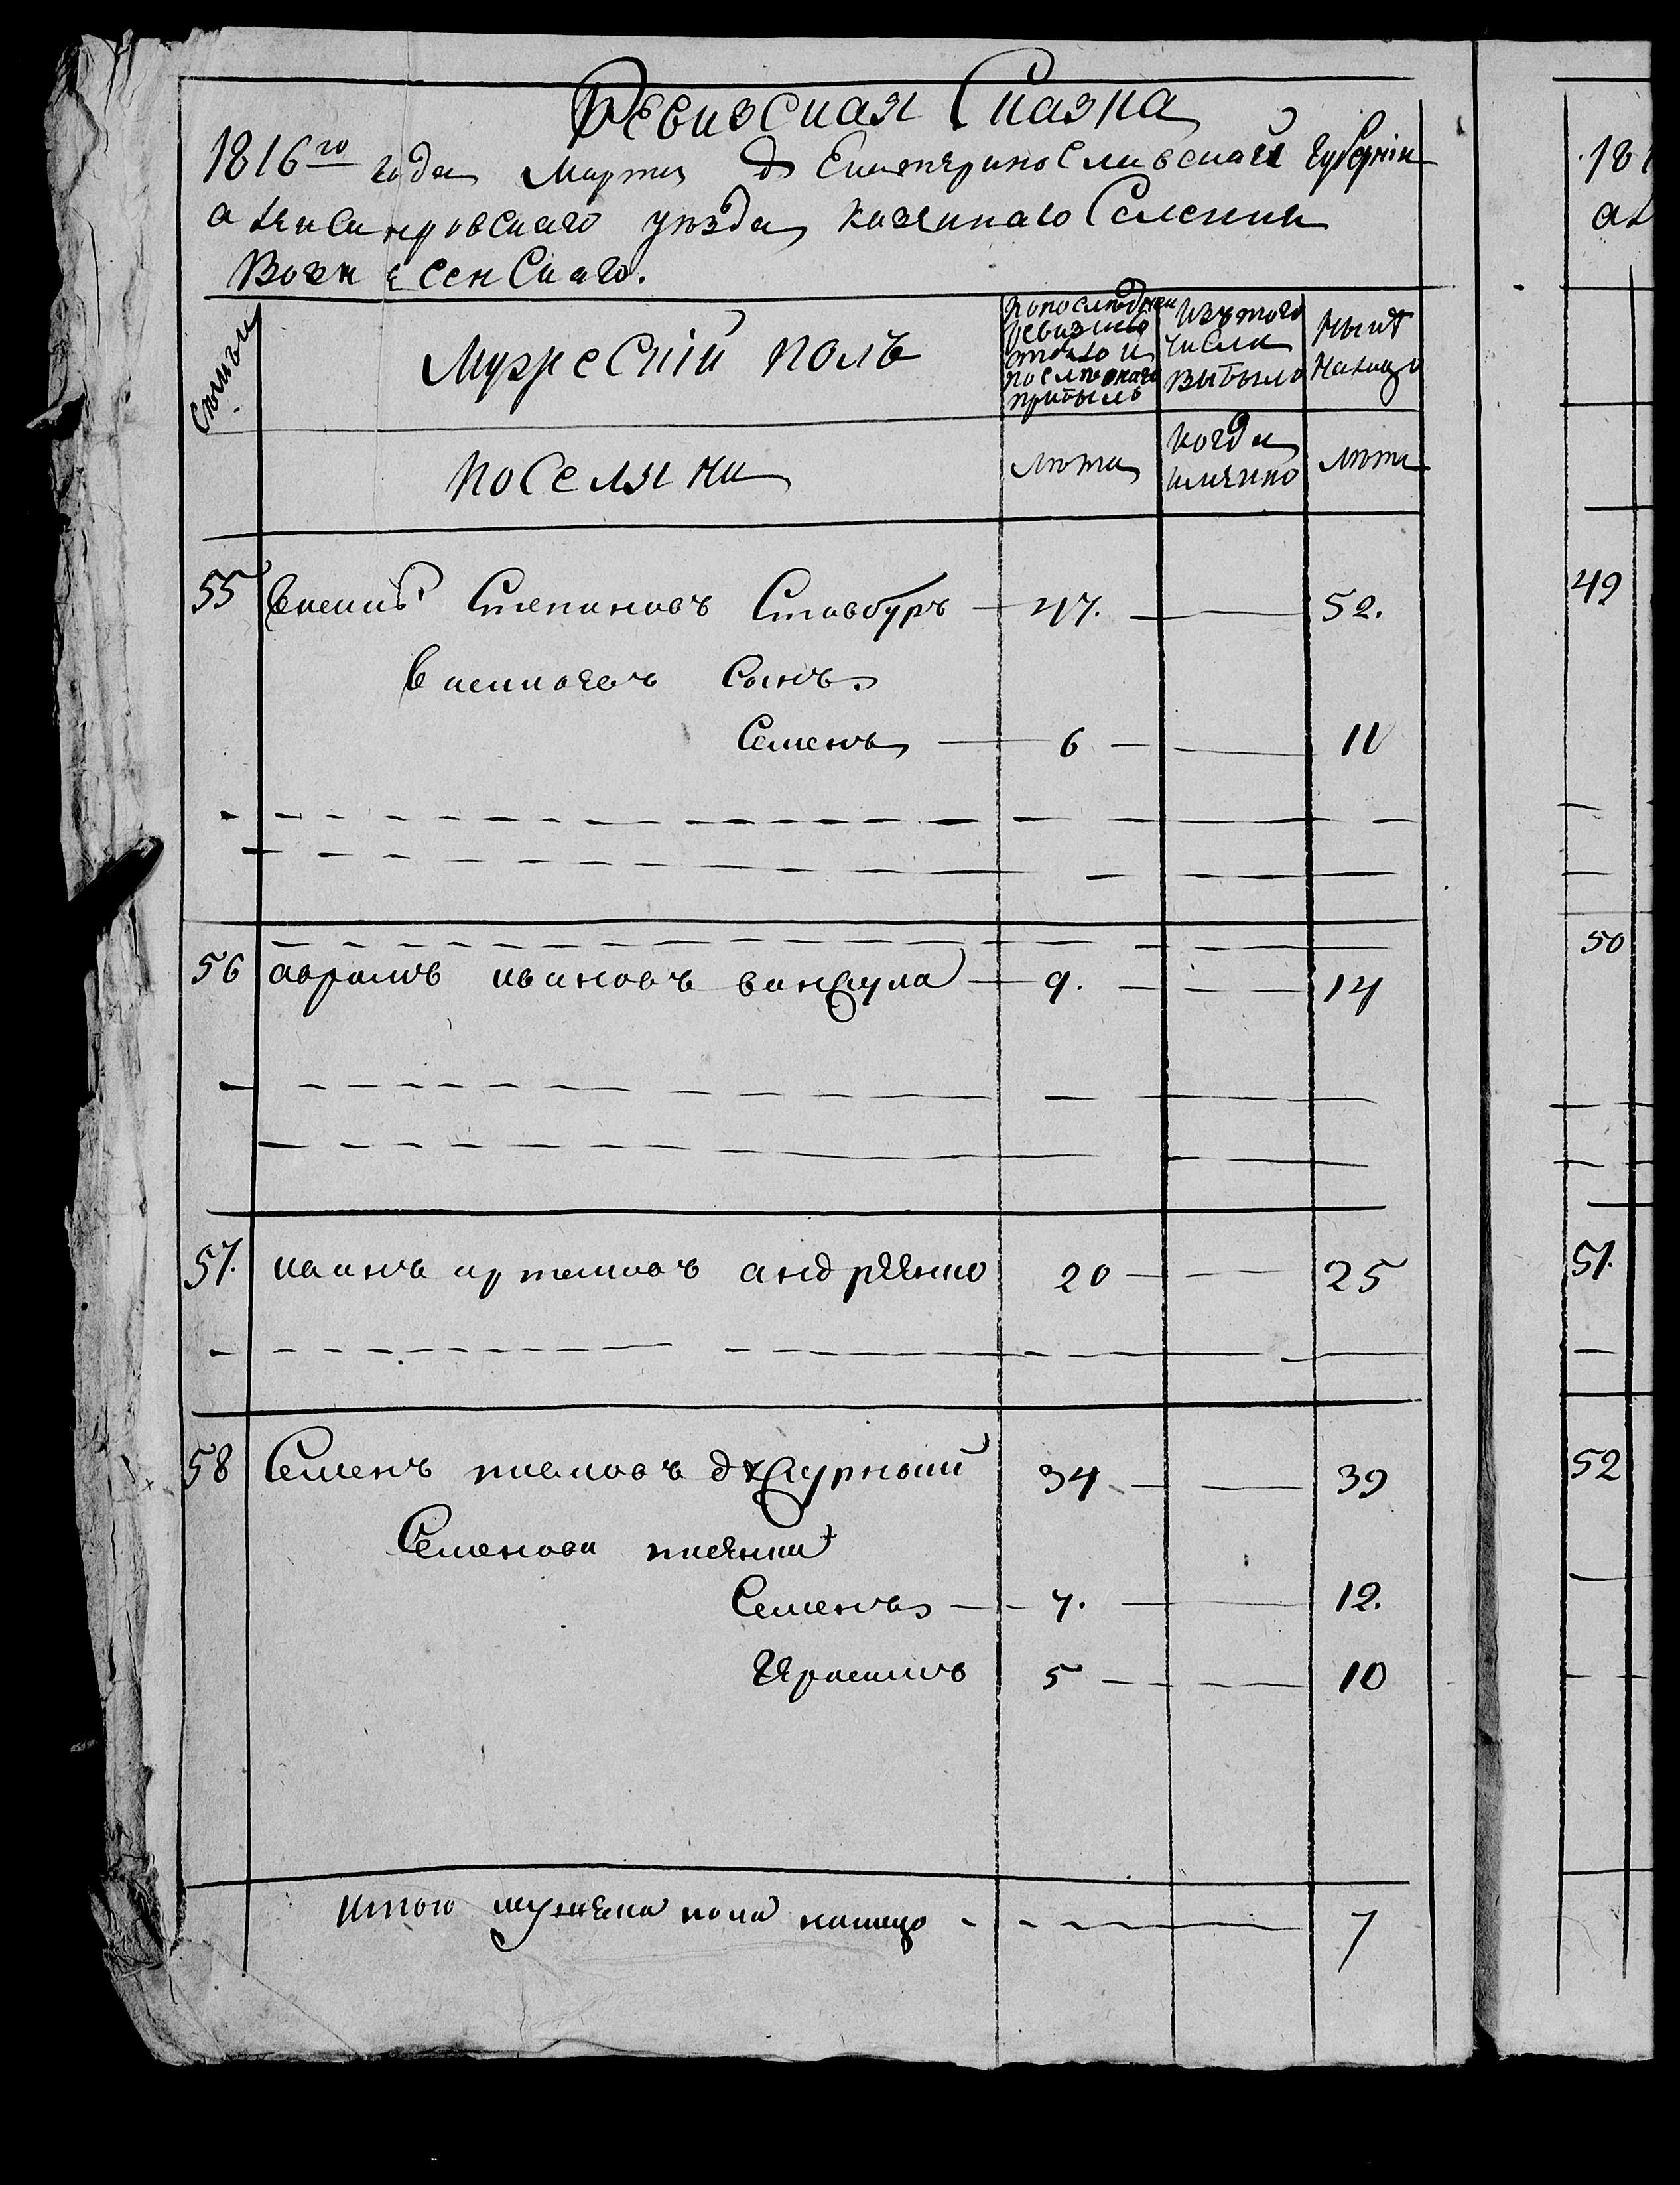 Ревизская Сказка
1816го года Марта Д Екатеринославской Губернии
александровскаго уезда, казеннаго Селения
Вознесенскаго.
Семьи
Мужеский полъ
по последней ревизии состояло и после оной прибыло
Изъ того числа выбыло
Ныне на лицо
поселяне
лета
когда именно
лета
55 Степановъ Ставбуръ 47. 52.
Сынъ
Семенъ 6 11
56 аврамъ ивановъ 9. 14
57. иванъ артемовъ андреенко 20 25
58 Семенъ джурный 34 39
Семенова
Семенъ 7. 12.
Герасимъ 5 10
итого мужеска пола налицо 7
181
ал
49
50
51.
52